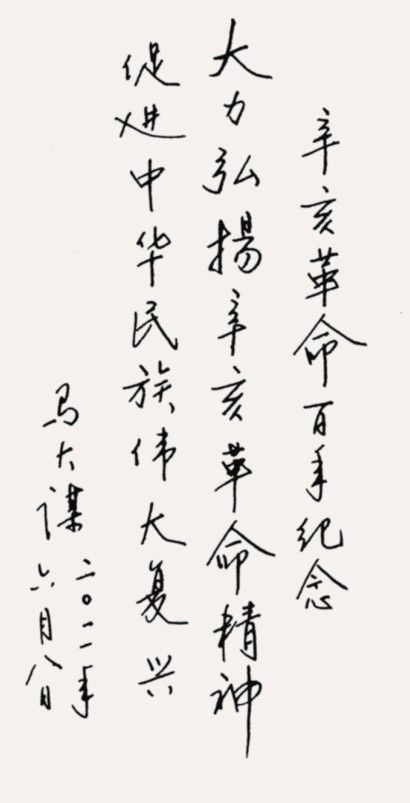 辛亥革命百年纪念
大力弘揚辛亥革命精神
促进中华民族伟大复兴
马大谋
二〇一一年
六月八日